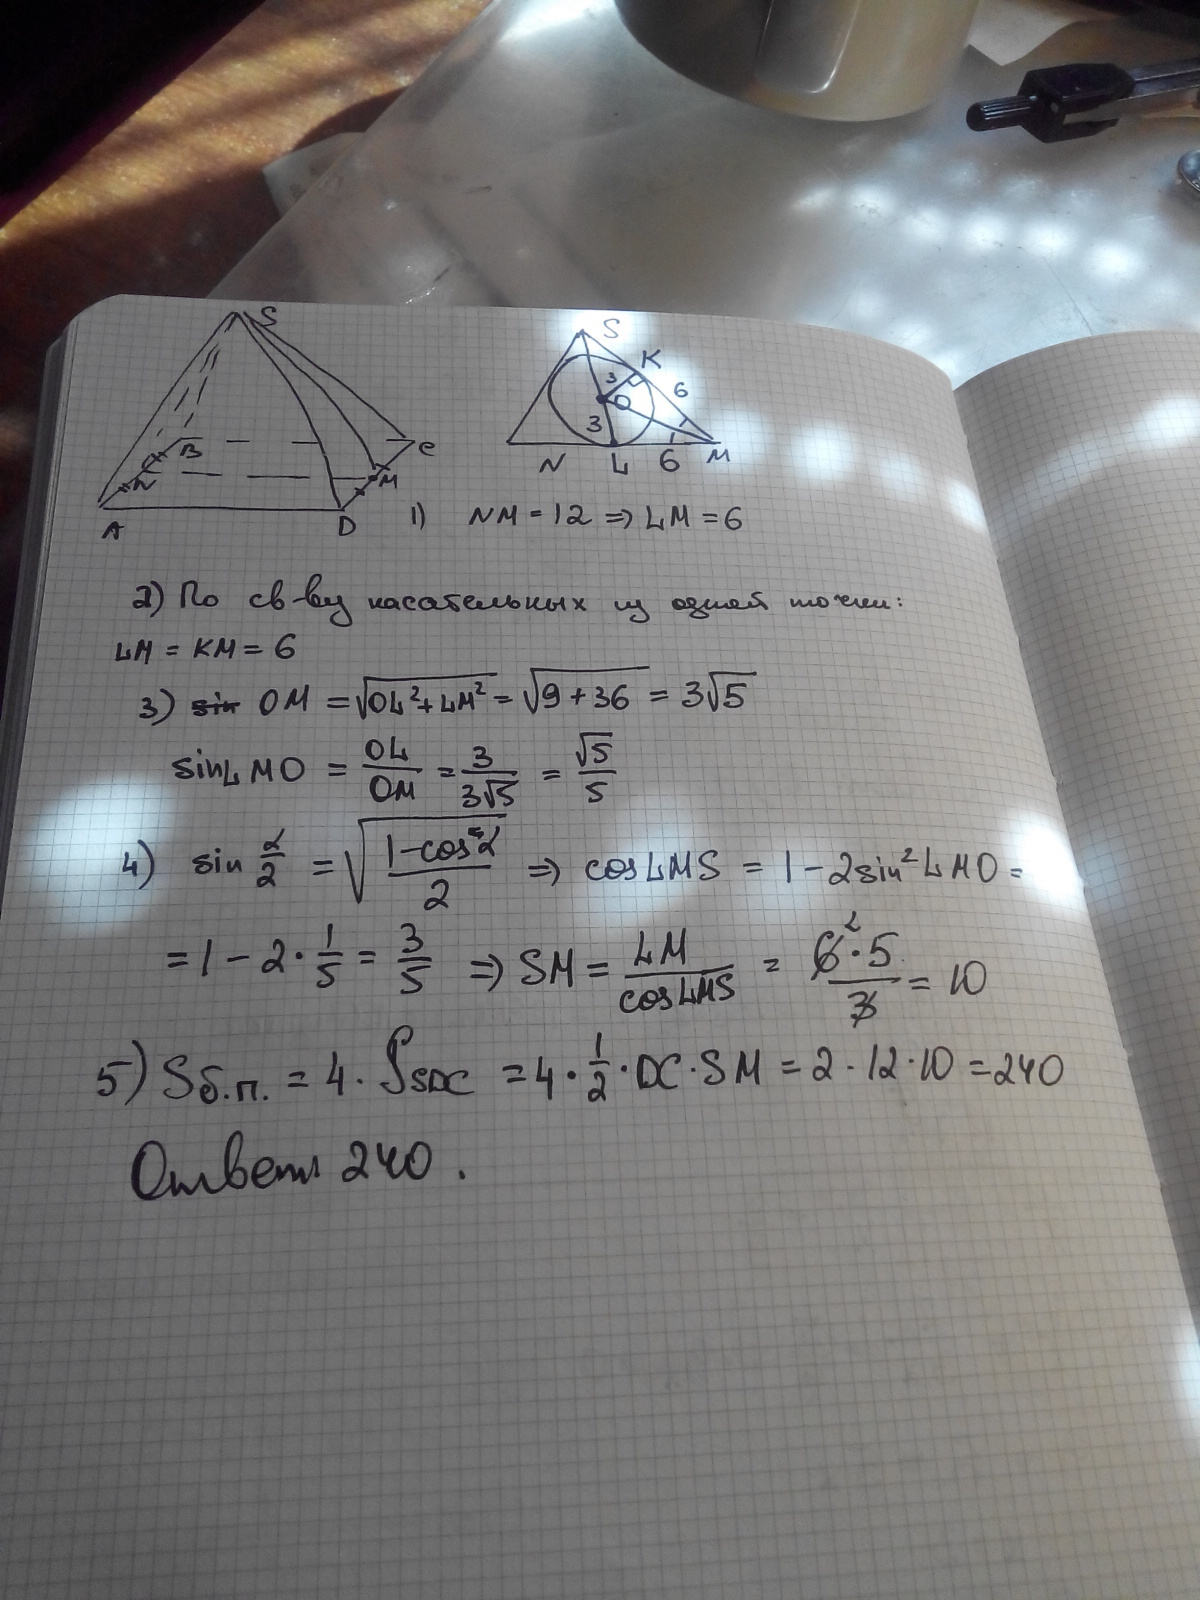 S
B
N
A
D
M
C
S
K
3
O
6
3
N L 6 M
1) NM = 12 => LM = 6
2) По св-ву касательных из одной точки:
LM = KM = 6
3) sin OM = √(OL² + LM²) = √(9 + 36) = 3√5
sin LMO = OL/OM = 3/(3√5) = √5/5
4) sin α/2 = √((1-cos α)/2) => cos LMS = 1 - 2sin² LMO =
= 1 - 2 · 1/5 = 3/5 => SM = LM/cos LMS = (6 2 · 5)/3 = 10
5) Sб.п. = 4 · S SDC = 4 · 1/2 · DC · SM = 2 · 12 · 10 = 240
Ответ 240.